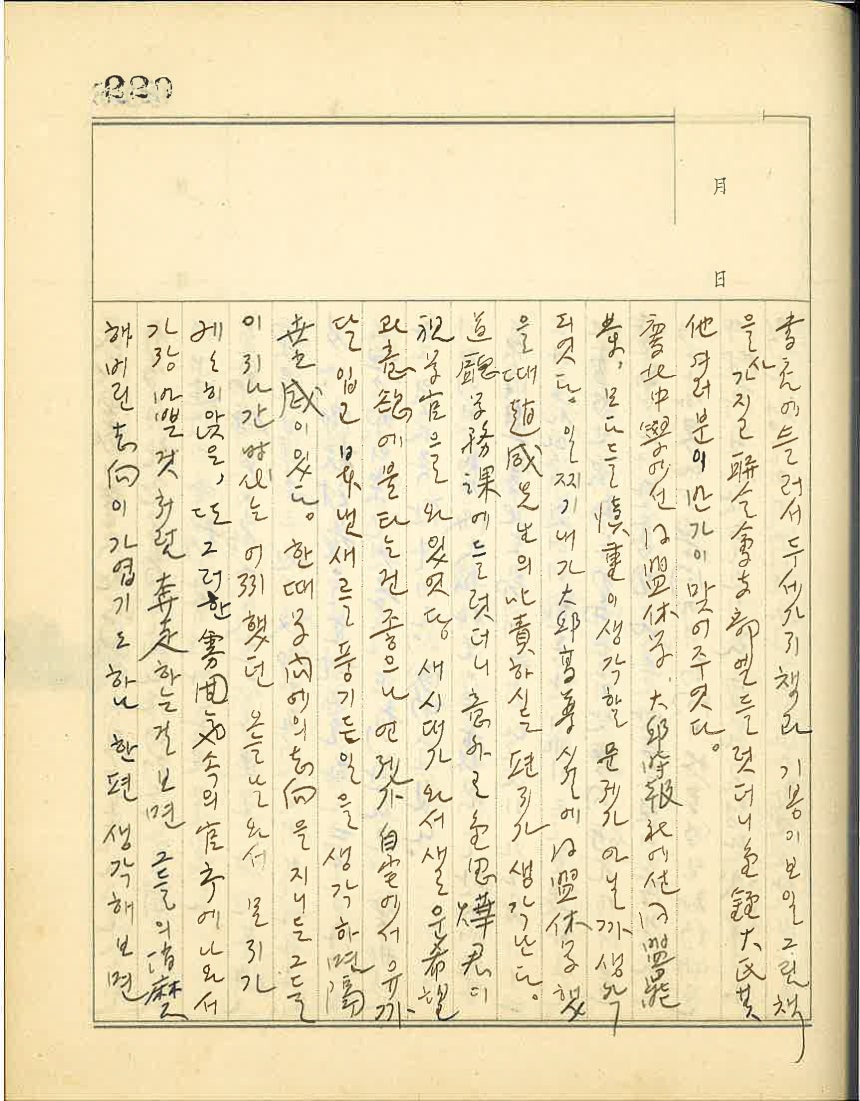 229
月
日
書店에 들러서 두세가지 책과 기봉이 보일 그림책
을 사가지고 聯合會支部엘 들렀더니 金鍾大氏其
他 여러분이 반가이 맞어주었다.
慶北中學에선 同盟休学, 大邱時報社에선 同盟罷
業, 모다들 愼重이 생각할 문제가 아닐까 생각
되었다. 일찌기 내가 大邱高普 싳에 同盟休学했
을때 趙 先生의 叱責하실든 편지가 생각난다.
道廳学務課에 들렀더니 意外로 金思燁君이
視学官으로 와있었다. 새시대가 와서 새로운 希望
과 意慾에 불타는건 좋으나 언젠가 自宅에서 유까
달 입고 日本 냄새를 풍기든일을 생각하면 隔
世感이 있다. 한때 学問에의 志向을 지니든 그들
이 지나간 때는 어찌했던 오늘날 와서 모리가
에 앉은, 또 그러한 雰囲氣속의 官 에 나와서
가장 바쁠것처럼 奔走하는걸 보면 그들의
해버린 志向이 가엽기도 하나 한편 생각해 보면